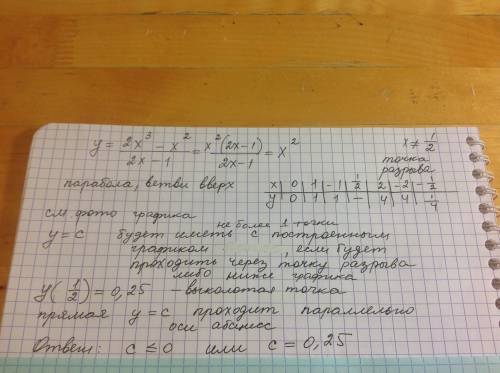 y = 2x³ - x² / 2x - 1 = x²(2x-1) / 2x-1 = x²
x ≠ 1/2
точка
разрыва
парабола, ветви вверх
x | 0 | 1 | -1 | 1/2 | 2 | -2 | -1/2
y | 0 | 1 | 1 | - | 4 | 4 | 1/4
см. фото графика
не более 1 точки
y = c будет иметь с построенным
графиком , если будет
проходить через точку разрыва
либо ниже графика
y(1/2) = 0,25 выколотая точка
прямая y = c проходит параллельно
оси абсцисс
Ответ: c ≤ 0 или c = 0,25